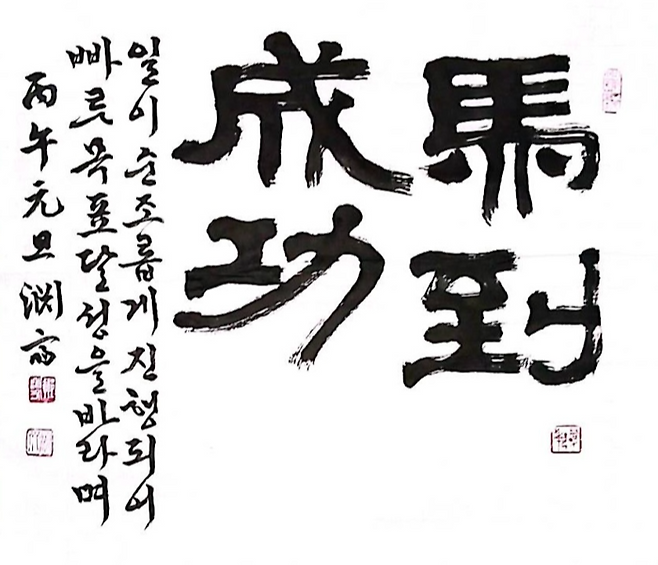 馬到
成功
일이순조롭게진행되어
빠른목표달성을바라며
丙午元旦 渊斋